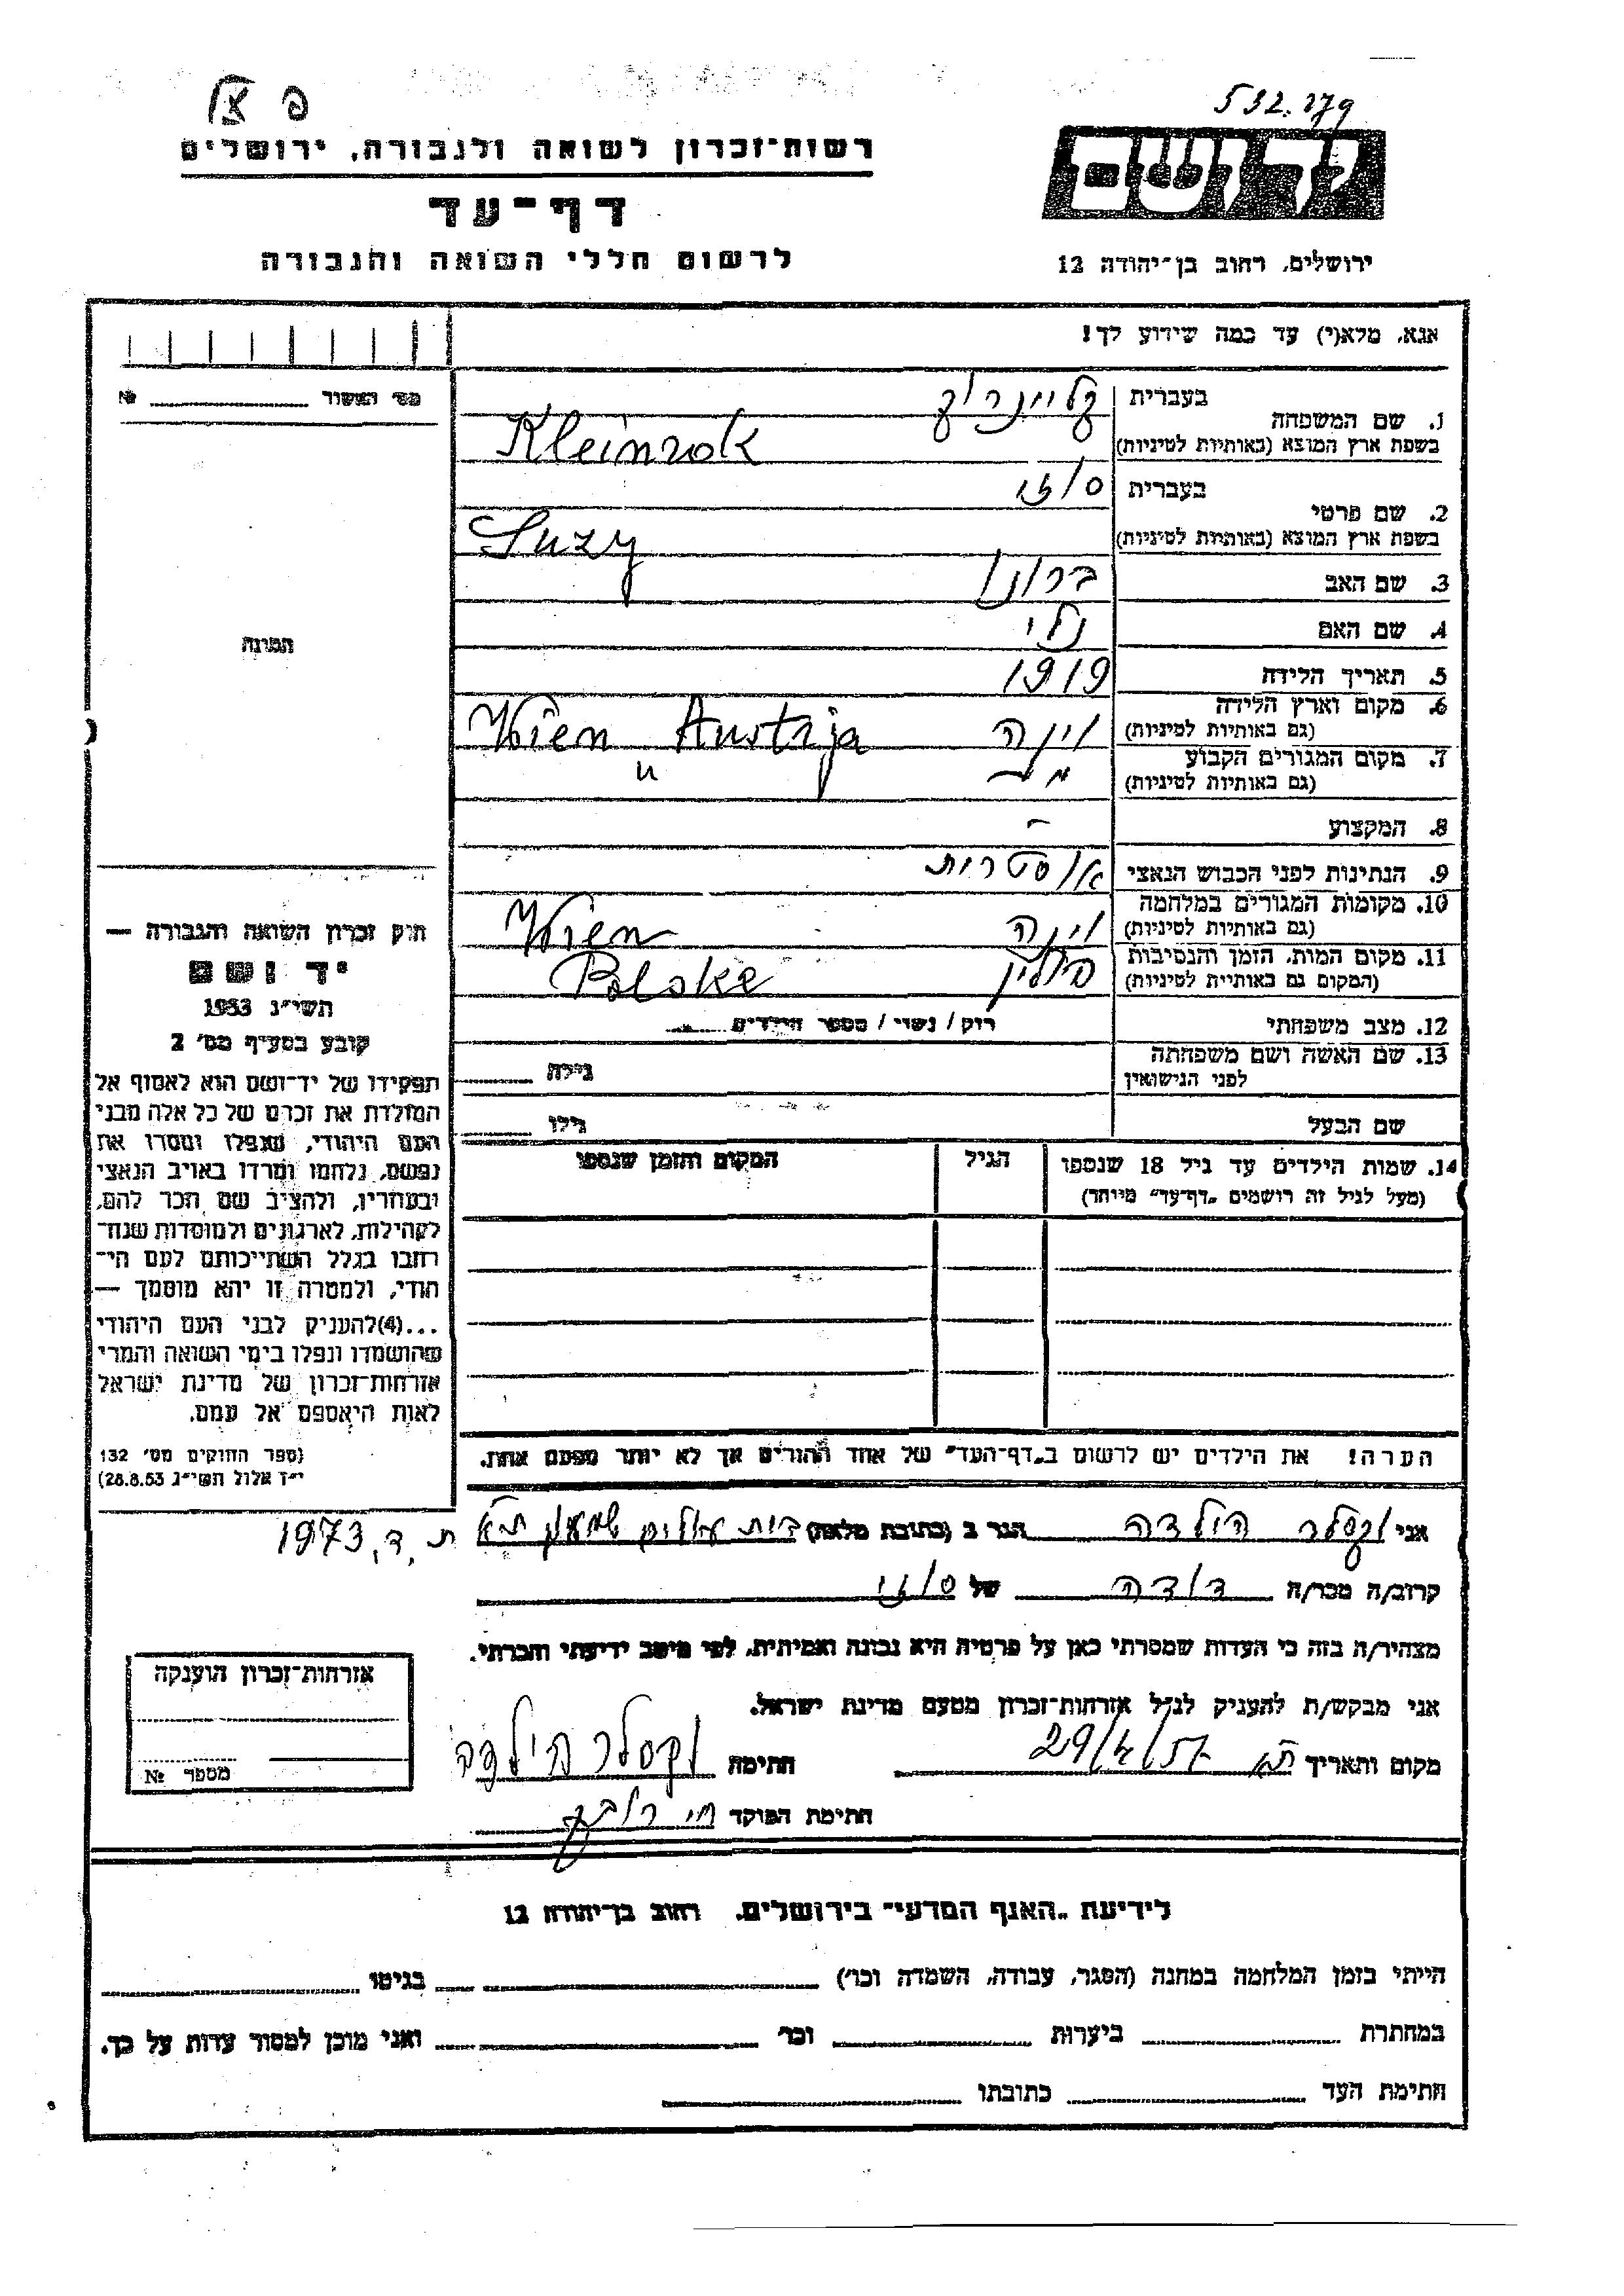 פ צל
532.279
רשות־זכרון לשואה ולגבורה, ירושלים
יד ושם
דף־עד
לרשום חללי השואה והגבורה
ירושלים, רחוב בן־יהודה 12
אנא, מלא(י) עד כמה שידוע לך!
מס׳ האשור № 
1. שם המשפחה
בעברית קליינרוק
בשפת ארץ המוצא (באותיות לטיניות) Kleinrok
2. שם פרטי
בעברית סוזי
בשפת ארץ המוצא (באותיות לטיניות) Suzy
3. שם האב ברונו
4. שם האם נלי
5. תאריך הלידה 1919
6. מקום וארץ הלידה
(גם באותיות לטיניות) וינה Wien Austrja
7. מקום המגורים הקבוע
(גם באותיות לטיניות) "
8. המקצוע -
9. הנתינות לפני הכבוש הנאצי אוסטרית
10. מקומות המגורים במלחמה
(גם באותיות לטיניות) וינה Wien
11. מקום המות, הזמן והנסיבות
(המקום גם באותיות לטיניות) פולין Polske
12. מצב משפחתי רוק / נשוי / מספר הילדים
13. שם האשה ושם משפחתה
לפני הנישואין גילה
שם הבעל גילו
14. שמות הילדים עד גיל 18 שנספו
(מעל לגיל זה רושמים „דף־עד" מיוחד)
הגיל
המקום והזמן שנספו
הערה! את הילדים יש לרשום ב„דף־העד" של אחד ההורים אך לא יותר מפעם אחת.
התמונה
חוק זכרון השואה והגבורה —
יד ושם
תשי״ג 1953
קובע בסעיף מס׳ 2
תפקידו של יד־ושם הוא לאסוף אל
המולדת את זכרם של כל אלה מבני
העם היהודי, שנפלו ומסרו את
נפשם, נלחמו ומרדו באויב הנאצי
ובעוזריו, ולהציב שם וזכר להם,
לקהילות, לארגונים ולמוסדות שנח־
רבו בגלל השתייכותם לעם הי־
הודי, ולמטרה זו יהא מוסמך —
...(4)להעניק לבני העם היהודי
שהושמדו ונפלו בימי השואה והמרי
אזרחות־זכרון של מדינת ישראל
לאות היאספם אל עמם.
(ספר החוקים מס׳ 132
י״ז אלול תשי״ג 28.8.53)
אני וקסלר הילדה הגר ב (כתובת מלאה) בית עולים שמעון ת״א ת.ד. 1973
קרוב/ה מכר/ה דודה של סוזי
מצהיר/ה בזה כי העדות שמסרתי כאן על פרטיה היא נכונה ואמיתית, לפי מיטב ידיעתי והכרתי.
אני מבקש/ת להעניק לנ״ל אזרחות־זכרון מטעם מדינת ישראל.
מקום ותאריך ת״א 29/4/57 חתימה וקסלר הילדה
חתימת הפוקד
אזרחות־זכרון הוענקה
מספר №
לידיעת „האגף המדעי" בירושלים, רחוב בן־יהודה 12
הייתי בזמן המלחמה במחנה (הסגר, עבודה, השמדה וכו׳) בגיטו
במחתרת ביערות וכו׳ ואני מוכן למסור עדות על כך.
חתימת העד כתובתו